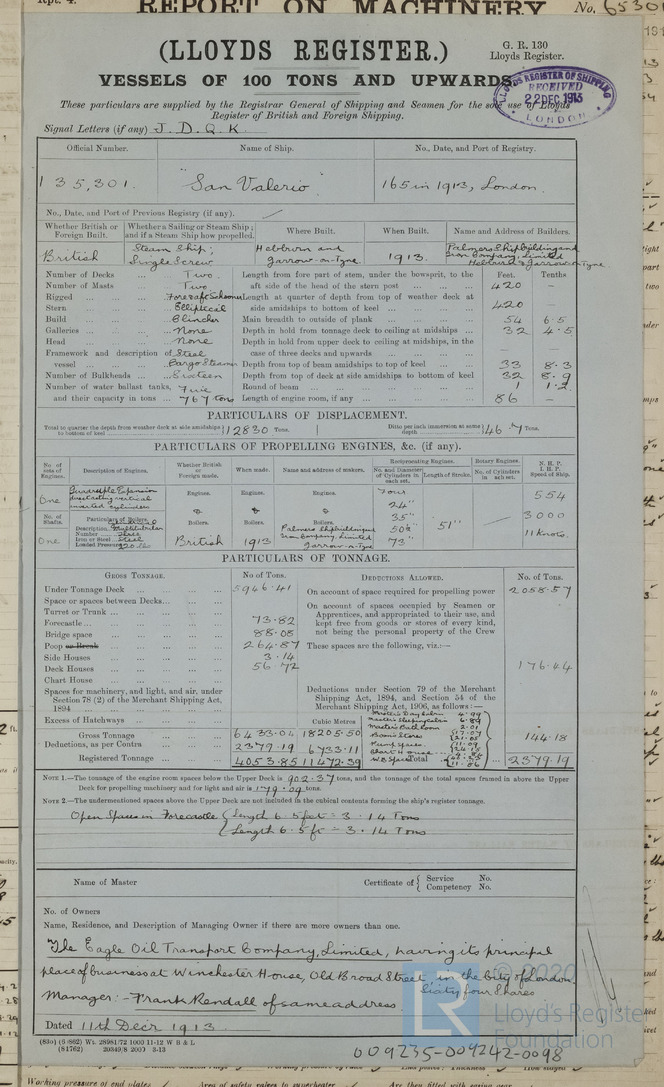 Rpt. 4. REPORT ON MACHINERY No. 6530
(LLOYDS REGISTER.)
G. R. 130
Lloyds Register.
VESSELS OF 100 TONS AND UPWARDS
LLOYDS REGISTER OF SHIPPING
RECEIVED
22 DEC 1913
LONDON
These particulars are supplied by the Registrar General of Shipping and Seamen for the sole use of Lloyds
Register of British and Foreign Shipping.
Signal Letters (if any) J. D. Q. K.
Official Number. Name of Ship. No., Date, and Port of Registry.
135,301. "San Valerio" 165 in 1913, London.
No., Date, and Port of Previous Registry (if any).
Whether British or Foreign Built. Whether a Sailing or Steam Ship; and if a Steam Ship how propelled. Where Built. When Built. Name and Address of Builders.
British Steam Ship; Single Screw Hebburn and Jarrow-on-Tyne 1913. Palmers Shipbuilding and Iron Company, Limited Hebburn & Jarrow-on-Tyne
Number of Decks Two. Length from fore part of stem, under the bowsprit, to the Feet. Tenths
Number of Masts Two aft side of the head of the stern post 420 –
Rigged Fore & aft Schooner Length at quarter of depth from top of weather deck at
Stern Elliptical side amidships to bottom of keel 420
Build Clincher Main breadth to outside of plank 54 6·5
Galleries None Depth in hold from tonnage deck to ceiling at midships 32 4·5
Head None Depth in hold from upper deck to ceiling at midships, in the
Framework and description of Steel case of three decks and upwards – –
vessel Cargo Steamer Depth from top of beam amidships to top of keel 33 8·3
Number of Bulkheads Sixteen Depth from top of deck at side amidships to bottom of keel 32 8·9
Number of water ballast tanks, Five Round of beam 1 1·2
and their capacity in tons 767 tons Length of engine room, if any 86 –
PARTICULARS OF DISPLACEMENT.
Total to quarter the depth from weather deck at side amidships to bottom of keel 12830 Tons. Ditto per inch immersion at same depth 46·7 Tons.
PARTICULARS OF PROPELLING ENGINES, &c. (if any).
No. of sets of Engines. Description of Engines. Whether British or Foreign made. When made. Name and address of makers. Reciprocating Engines. Rotary Engines. N. H. P. I. H. P. Speed of Ship.
No. and Diameter of Cylinders in each set. Length of Stroke. No. of Cylinders in each set.
One Quadruple Expansion direct acting vertical inverted cylinders Engines. Engines. Engines. Four 24" 554
No. of Shafts. Particulars of Boilers. 35" 51" 3000
Description Multitubular Boilers. Boilers. Boilers. 50½"
Number Three
One Iron or Steel Steel British 1913 Palmers Shipbuilding & Iron Company, Limited Jarrow-on-Tyne 73" 11 Knots.
Loaded Pressure 220 lbs
PARTICULARS OF TONNAGE.
GROSS TONNAGE. No of Tons. DEDUCTIONS ALLOWED. No. of Tons.
Under Tonnage Deck 5946·41 On account of space required for propelling power 2058·57
Space or spaces between Decks On account of spaces occupied by Seamen or
Turret or Trunk Apprentices, and appropriated to their use, and
Forecastle 73·82 kept free from goods or stores of every kind,
Bridge space 88·08 not being the personal property of the Crew
Poop or Break 264·87 These spaces are the following, viz.:—
Side Houses 3·14
Deck Houses 56·72 176·44
Chart House
Spaces for machinery, and light, and air, under Deductions under Section 79 of the Merchant
Section 78 (2) of the Merchant Shipping Act, Shipping Act, 1894, and Section 54 of the
1894 Merchant Shipping Act, 1906, as follows:—
Excess of Hatchways Cubic Metres
Gross Tonnage 6433·04 18205·50 144·18
Deductions, as per Contra 2379·19 6733·11
Registered Tonnage 4053·85 11472·39 Total 2379·19
NOTE 1.—The tonnage of the engine room spaces below the Upper Deck is 902·37 tons, and the tonnage of the total spaces framed in above the Upper
Deck for propelling machinery and for light and air is 179·09 tons.
NOTE 2.—The undermentioned spaces above the Upper Deck are not included in the cubical contents forming the ship's register tonnage.
Open Spaces in Forecastle { Length 6·5 feet = 3·14 Tons
{ Length 6·5 ft = 3·14 Tons
Name of Master Certificate of { Service No.
Competency No.
No. of Owners
Name, Residence, and Description of Managing Owner if there are more owners than one.
The Eagle Oil Transport Company, Limited, having its principal
place of business at Winchester House, Old Broad Street in the City of London.
Sixty four Shares
Manager:- Frank Kendall of same address.
Dated 11th Decr 1913.
(83o) (6/862) Wt. 28981/72 1000 11-12 W B & L
(81762) 20349/8 2000 3-13
© 2020
LR
Lloyd's Register
Foundation
009235-009242-0098
Working pressure of end plates Area of safety valves to superheater Are they fitted with easing gear